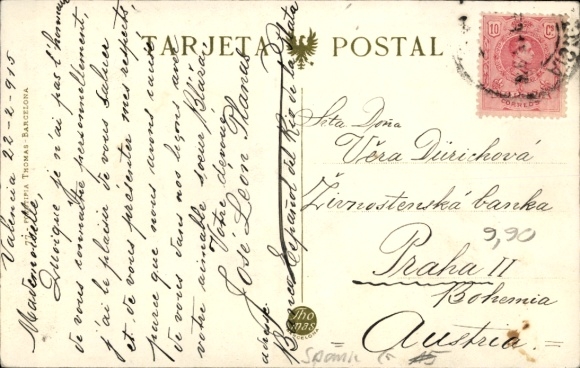 TARJETA POSTAL
10 Cs
CORREOS
Valencia 22-2-915
Mademoiselle,
Quoique je n'ai pas l'honneur
de vous connaître personnellement,
j'ai le plaisir de vous saluer
et de vous présenter mes respects,
parce que nous avons causé
de vous dans nos leçons avec
votre aimable soeur Blára.
Votre dévoué
José León Planas
adresse:
Banco Español del Río de la Plata
THOMAS-BARCELONA
Thomas
BARCELONA
Srta Doña
Věra Dürichová
Živnostenská banka
9,90
Praha II
Bohemia
Austria